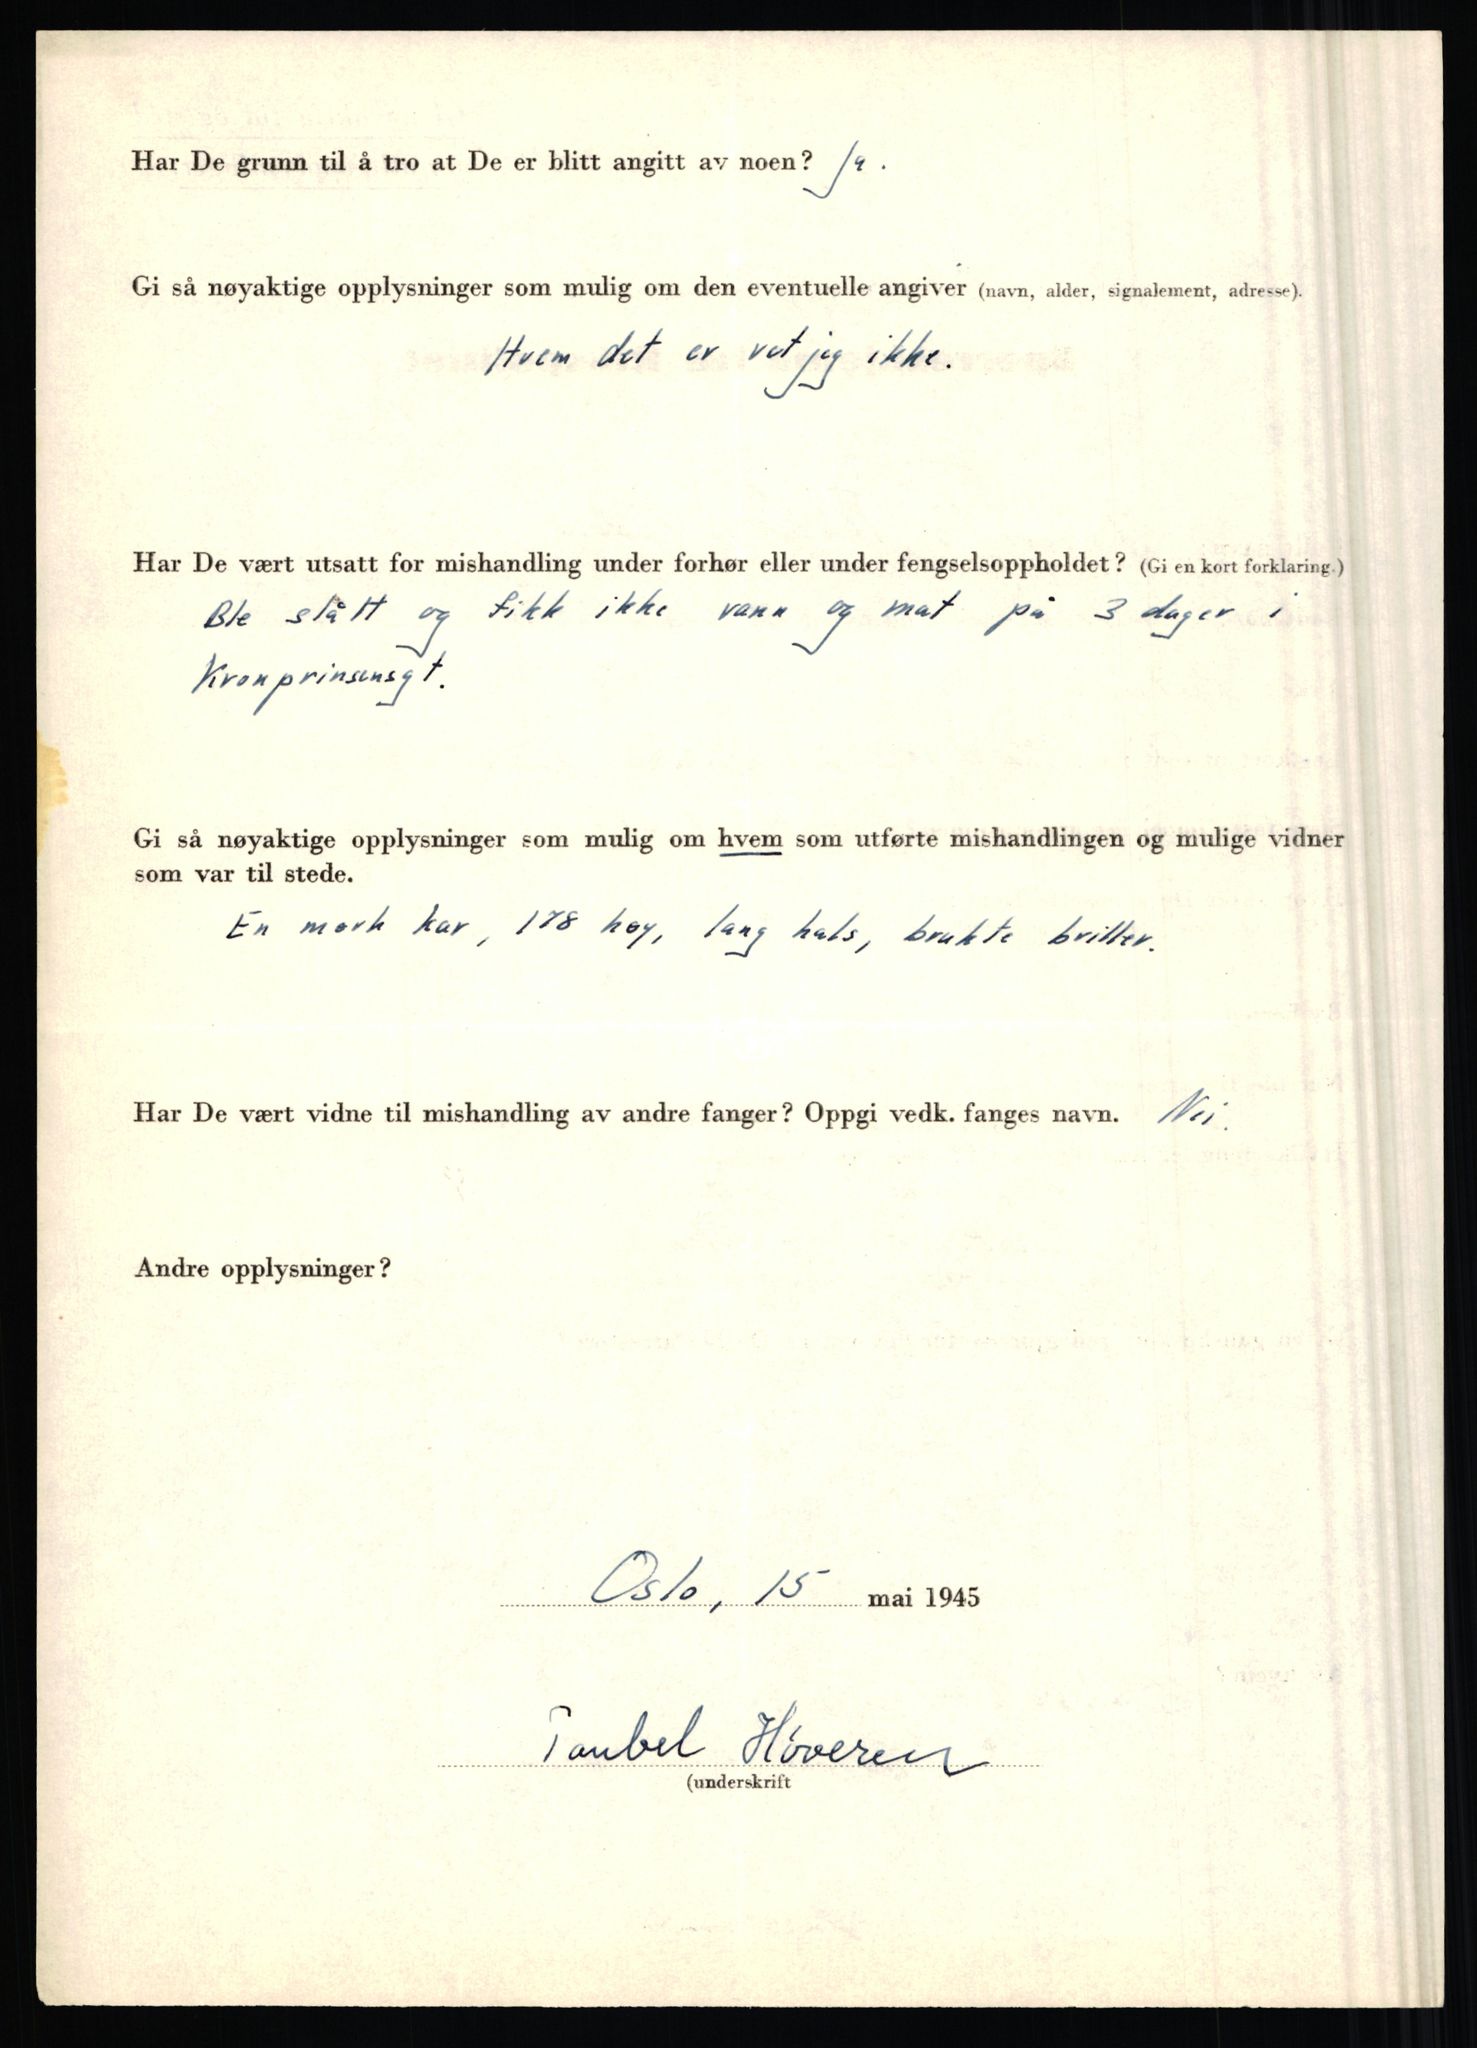 Har De grunn til å tro at De er blitt angitt av noen? Ja.
Gi så nøyaktige opplysninger som mulig om den eventuelle angiver (navn, alder, signalement, adresse).
Hvem det er vet jeg ikke.
Har De vært utsatt for mishandling under forhør eller under fengselsoppholdet? (Gi en kort forklaring.)
Ble slått og fikk ikke vann og mat på 3 dager i
Kronprinsensgt.
Gi så nøyaktige opplysninger som mulig om hvem som utførte mishandlingen og mulige vidner
som var til stede.
En mørk kar, 178 høy, lang hals, brukte briller.
Har De vært vidne til mishandling av andre fanger? Oppgi vedk. fanges navn. Nei.
Andre opplysninger?
Oslo, 15 mai 1945
Høveren
(underskrift